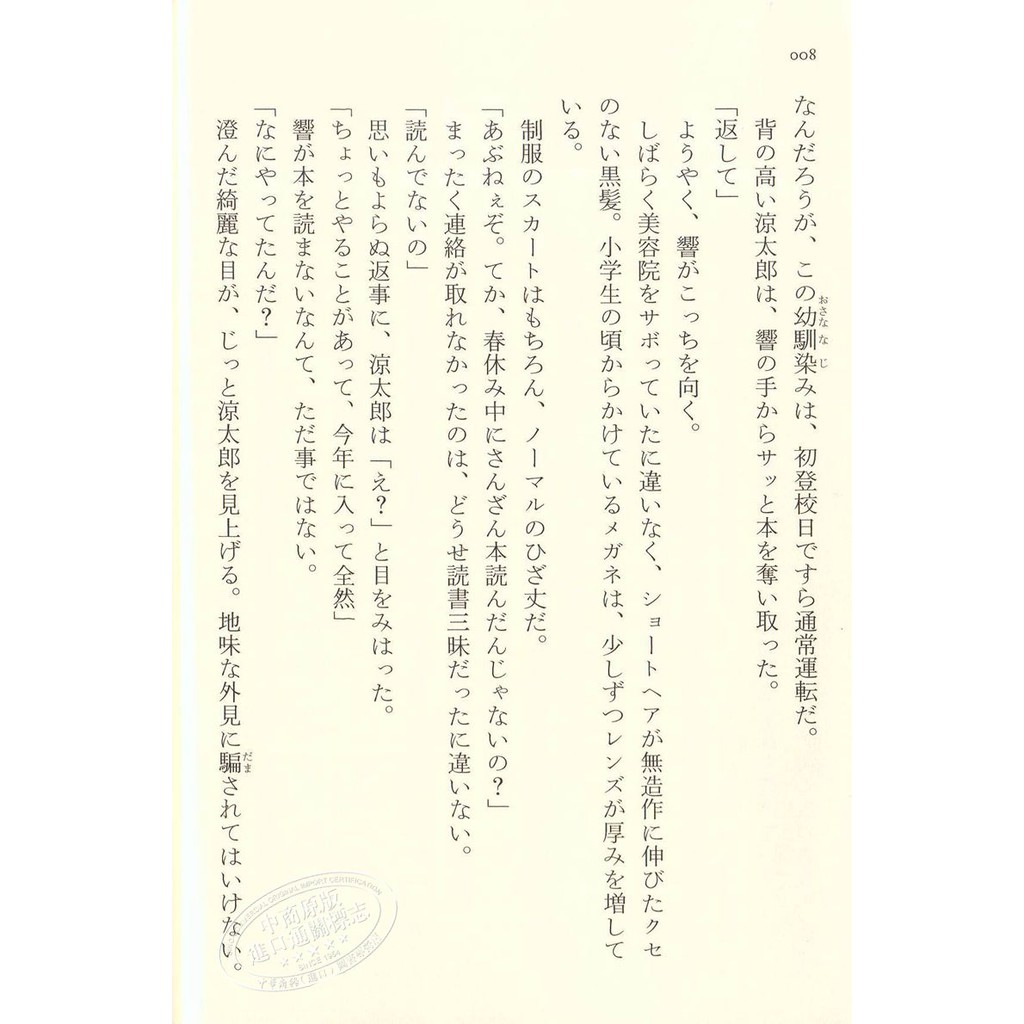 008
なんだろうが、この幼馴染みは、初登校日ですら通常運転だ。
おさななじ
背の高い涼太郎は、響の手からサッと本を奪い取った。
「返して」
ようやく、響がこっちを向く。
しばらく美容院をサボっていたに違いなく、ショートヘアが無造作に伸びたクセ
のない黒髪。小学生の頃からかけているメガネは、少しずつレンズが厚みを増して
いる。
制服のスカートはもちろん、ノーマルのひざ丈だ。
「あぶねぇぞ。てか、春休み中にさんざん本読んだんじゃないの？」
まったく連絡が取れなかったのは、どうせ読書三昧だったに違いない。
「読んでないの」
思いもよらぬ返事に、涼太郎は「え？」と目をみはった。
「ちょっとやることがあって、今年に入って全然」
響が本を読まないなんて、ただ事ではない。
「なにやってたんだ？」
澄んだ綺麗な目が、じっと涼太郎を見上げる。地味な外見に騙されてはいけない。
だま
中商原版
進口通關標志
SINCE 1984